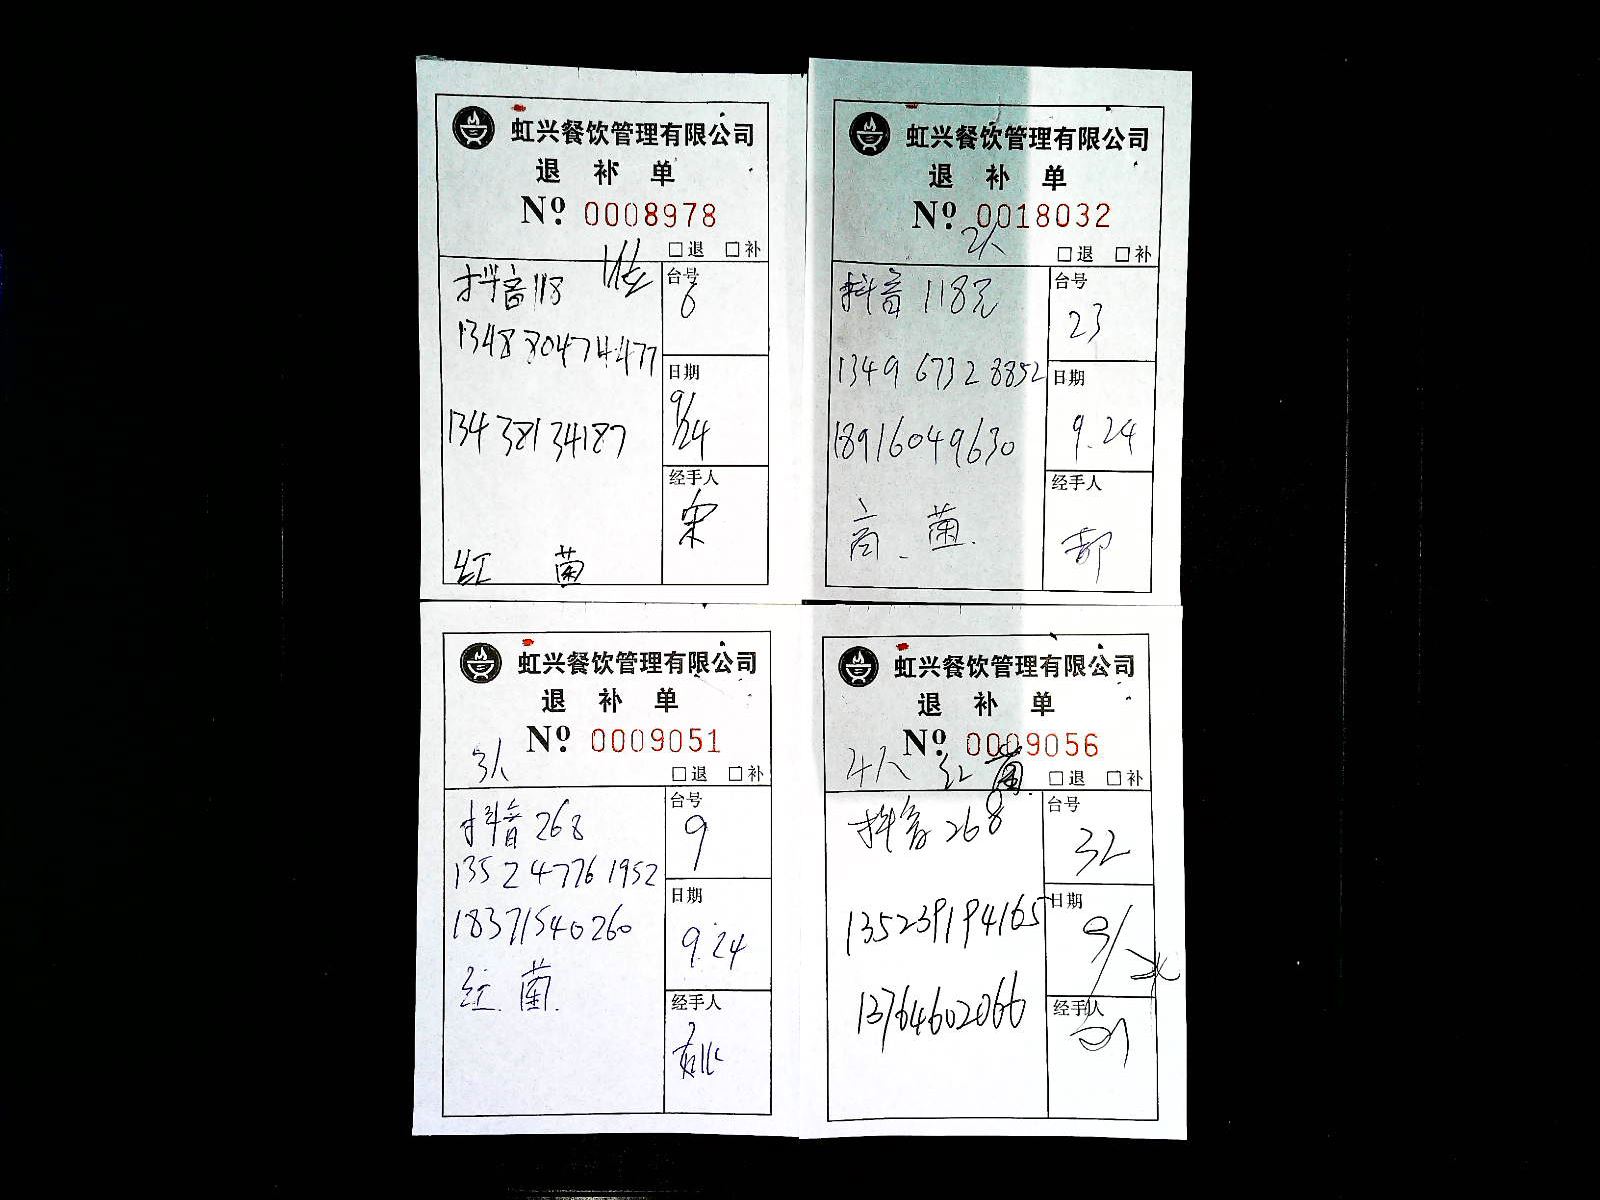 虹兴餐饮管理有限公司
退 补 单
№ 0008978
□退 □补
抖音118
134880474477
13438134187
红 菌
台号
6
日期
9/24
经手人
宋
虹兴餐饮管理有限公司
退 补 单
№ 0018032
2人
□退 □补
抖音118元
134967328852
18916049630
菌
台号
23
日期
9.24
经手人
郝
虹兴餐饮管理有限公司
退 补 单
№ 0009051
3人
□退 □补
抖音268
135247761952
18371540260
红 菌
台号
9
日期
9.24
经手人
姚
虹兴餐饮管理有限公司
退 补 单
№ 0009056
4人 红 菌
□退 □补
抖音268
135239194165
13764602066
台号
32
日期
经手人